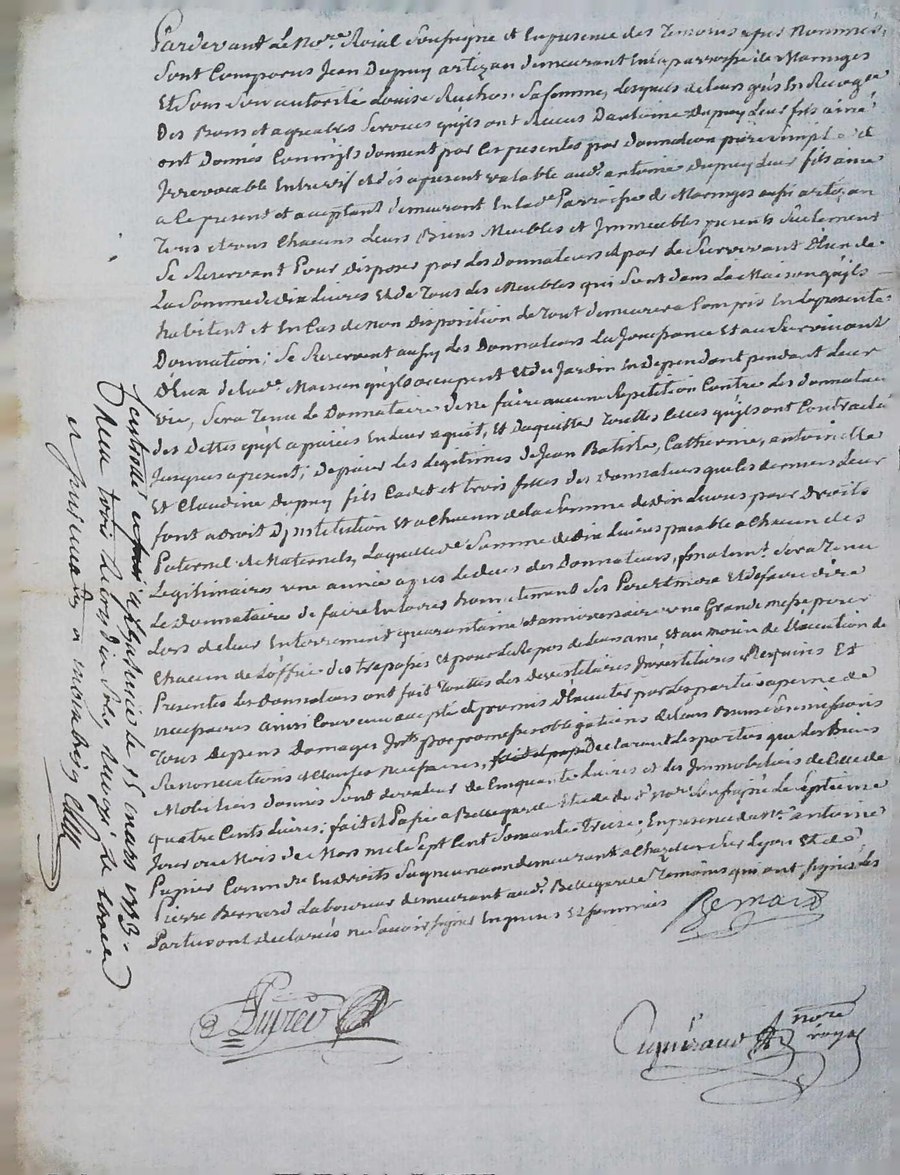 Pardevant Le Nore. Roial Soussigné et En presence des Temoins apres Nommes,
Sont Comparus Jean Dupuy artizan demeurant En la parroisse de Maringes
Et Sous Son autorité Louise Sa femme, lesquels de leurs grés En
Des Bons et agreables Services quils ont Recus Dantoine Dupuy Leur fils ainé
ont Donnés Comm'ils donnent par Ces presentes par donnation pure simple et
Irrevocable Entre vif et dès apresent valable aud. antoine Dupuy Leur fils ainé
a Ce present et acceptant demeurant En lad. Parroisse de Maringes aussi artizan
Tous et uns Chacuns Leurs Biens Meubles et Immeubles presents Seulement
Se Reservant Pour disposer par les Donnateurs et par le Survivant D'eux de
La Somme de dix Livres Et de Tous les Meubles qui Sont dans La Maison qu'ils
habitent et En Cas de non disposition le Tout demeurera Compris En la presente
Donnation; Se Reservent aussy les Donnateurs La Jouissance Et au Survivant
D'eux de lad. Maison qu'ils occupent Et du Jardin En dependant pendant Leur
vie, Sera Tenu Le Donnataire de Ne faire aucune Repetition Contre les donnateurs
des Dettes qu'il a paiées En Leur aquit, Et D'aquitter Touttes Celles qu'ils ont Contractés
Jusques apresent; de paier les Legitimes de Jean Batiste, Catherine, antoinette
Et Claudine Dupuy fils Cadet et trois filles des Donnateurs que les derniers Leur
font a droit D'Institution Et a Chacun de la Somme de dix Livres pour droits
Paternels et Maternels, Laquelle de. Somme de dix Livres paiable a Chacun des
Legitimaires une année apres Le deces des Donnateurs, finalemt. Sera Tenu
Le Donnataire de faire Enterrer honnetement Ses Pere et mere Et de faire dire
Lors de leur Enterrement quarantaine et anniversaire une Grande messe pour
Chacun de L'office des trepassés Et pour Le Repos de Leurs ame Et au moien de L'execution des
Presentes les Donnateurs ont fait Touttes les devestitures Investitures Requises Et
necessaires ainsi Convenu accepté et promis D'executer par les parties a peine de
Tous depens Domages Intts. par promesses obligations de Leurs Biens Soumissions
Renonciations et Clauses Necessaires, Declarant les parties que les Biens
Mobiliers donnés Sont de valeur de Cinquante Livres et les Immobiliers de Celle de
quatre Cents Livres; fait et Passé a Bellegarde Etude de d. Nore. Soussigné Le Septieme
Jour du Mois de Mars mil Sept Cent Soixante Treize, En presence de Me. antoine
En droits demeurant a Chazelles Sur Lyon Et de
Pierre Bernard Laboureur demeurant aud. Bellegarde Temoins qui ont Signé les
Parties ont declarés ne Savoir Signer Enquis Et Sommés
Bernard
nore
royal
Controllé a le 15 mars 1773.
Reçu trois Livres dix Sols,
et